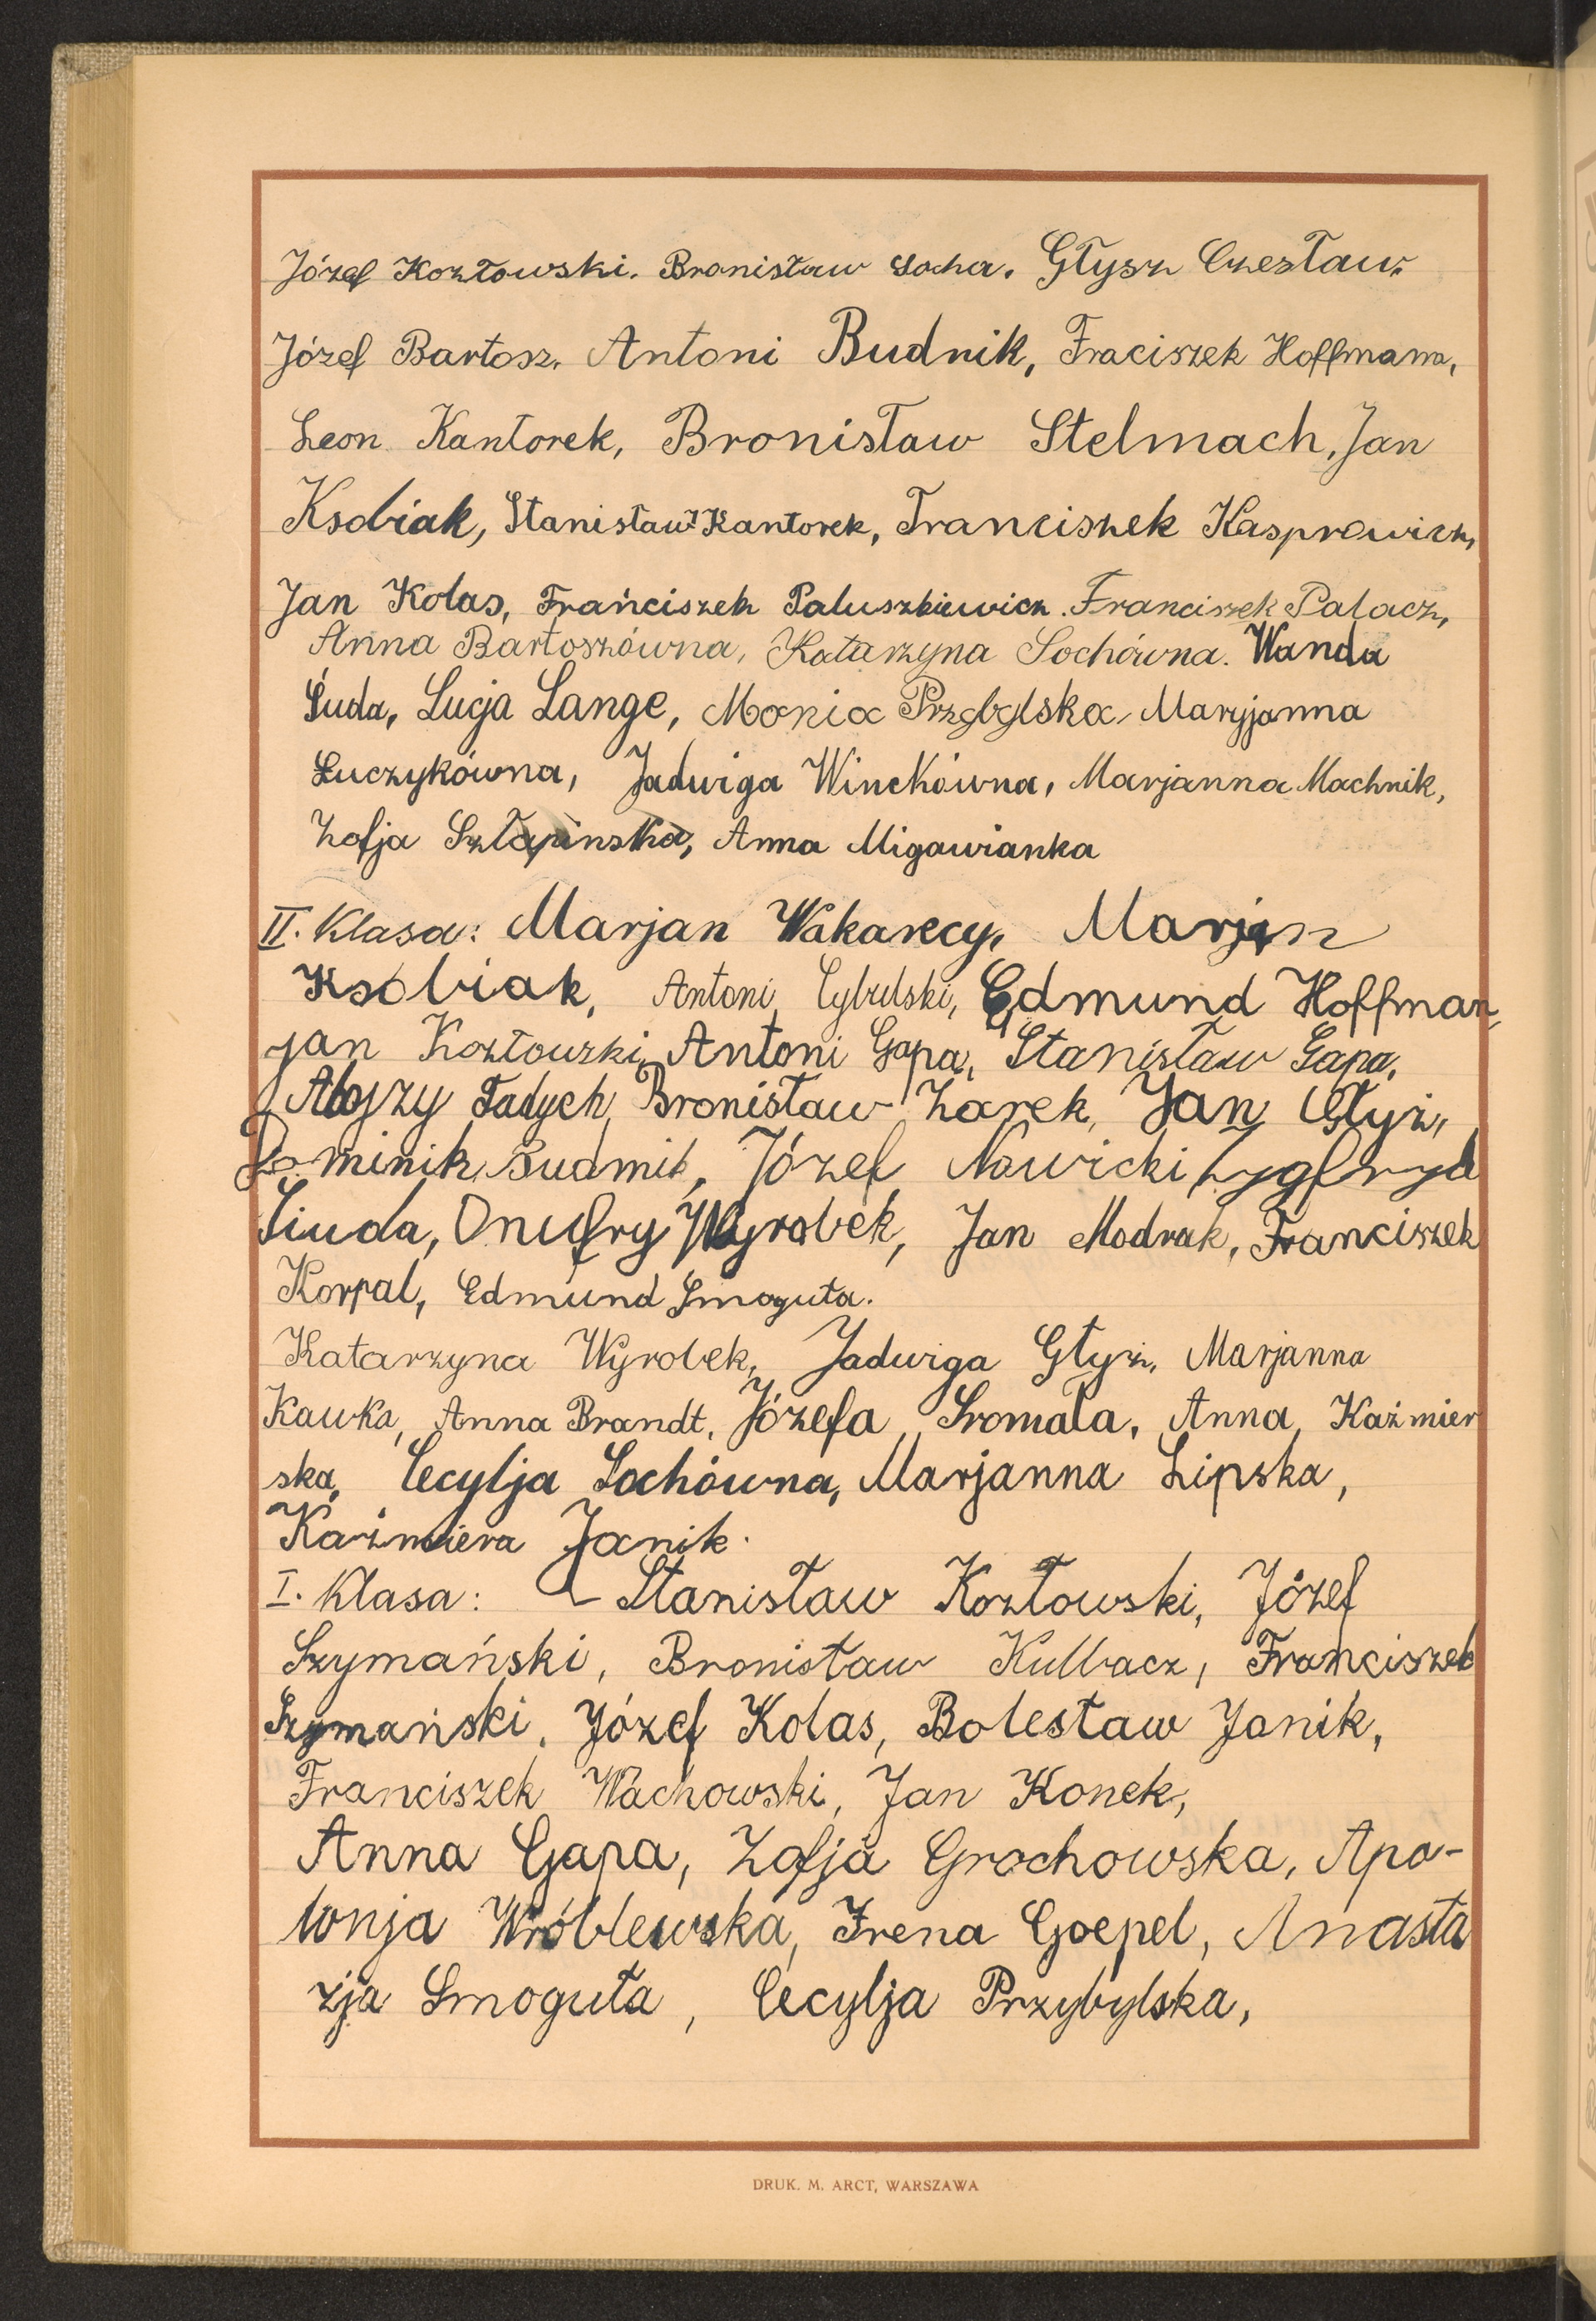 Józef Kozłowski. Bronisław Socha. Głysz Czesław.
Józef Bartosz. Antoni Budnik, Fraciszek Hoffmann,
Leon Kantorek, Bronisław Stelmach, Jan
Ksobiak, Stanisław Kantorek, Franciszek Kasprowicz,
Jan Kolas, Franciszek Paluszkiewicz. Franciszek Palacz,
Anna Bartoszówna, Katarzyna Sochówna. Wanda
Suda, Łucja Lange, Monia Przybylska, Maryjanna
Łuczykówna, Jadwiga Winckówna, Marjanna Machnik,
Zofja Szłapinska, Anna Migawianka
II. Klasa: Marjan Wakarecy, Marjan
Ksobiak, Antoni Cybulski, Edmund Hoffman,
Jan Kozłowski, Antoni Gapa, Stanisław Gapa,
Alojzy Tadych, Bronisław Żarek, Jan Głyż,
Dominik Budnik, Józef Nowicki Zygfryd
Siuda, Onufry Wyrobek, Jan Modrak, Franciszek
Korpal, Edmund Smoguła.
Katarzyna Wyrobek, Jadwiga Głyż, Marjanna
Kawka, Anna Brandt, Józefa Sromała, Anna Kaźmier
ska, Cecylja Sochówna, Marjanna Lipska,
Kaźmiera Janik.
I. Klasa: Stanisław Kozłowski, Józef
Szymański, Bronisław Kulbacz, Franciszek
Szymański, Józef Kolas, Bolesław Janik,
Franciszek Wachowski, Jan Konek,
Anna Gapa, Zofja Grochowska, Apo-
lonja Wróblewska, Irena Goepel, Anasta
zja Smoguła, Cecylja Przybylska,
DRUK. M. ARCT, WARSZAWA